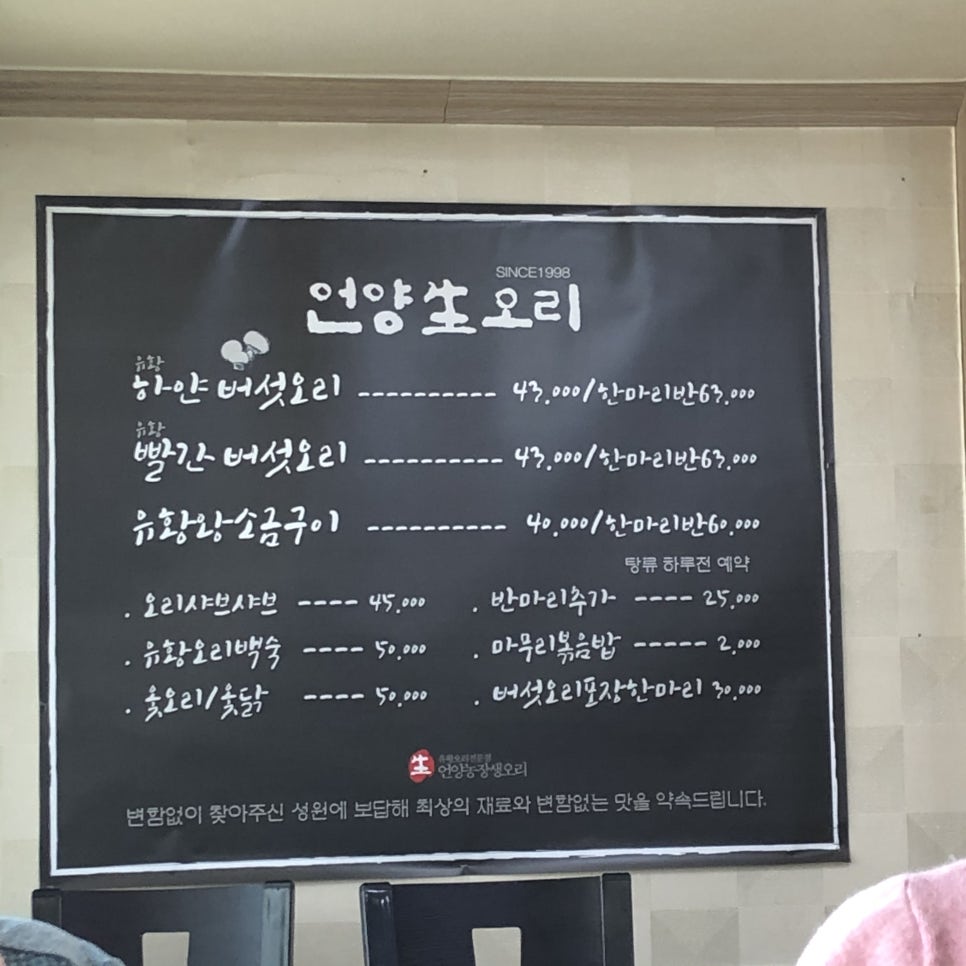 SINCE1998
언양生오리
유황
하얀 버섯오리 ---------- 43,000/한마리반63,000
유황
빨간 버섯오리 ---------- 43,000/한마리반63,000
유황왕소금구이 ---------- 40,000/한마리반60,000
탕류 하루전 예약
. 오리샤브샤브 ---- 45,000
. 유황오리백숙 ---- 50,000
. 옻오리/옻닭 ---- 50,000
. 반마리추가 ---- 25,000
. 마무리볶음밥 ----- 2,000
. 버섯오리포장한마리 30,000
生 유황오리전문점
언양농장생오리
변함없이 찾아주신 성원에 보답해 최상의 재료와 변함없는 맛을 약속드립니다.